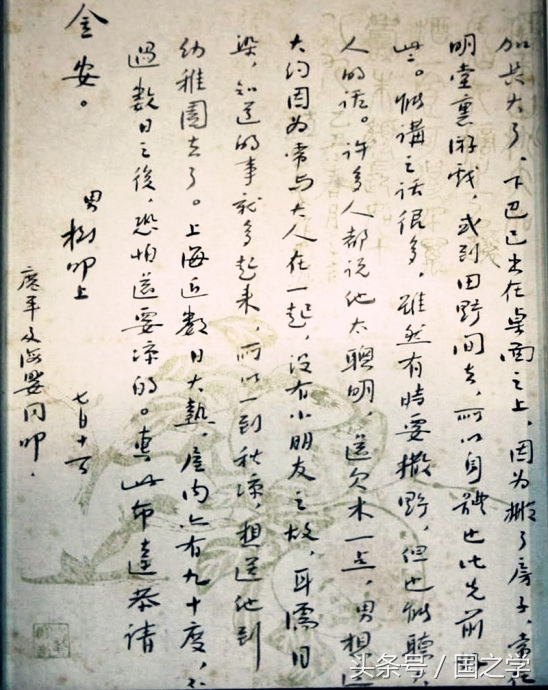 加其大了，下巴已出在桌面之上，因为搬了房子，常在
明堂裏游戏，或到田野间去，所以身體也比先前
些。能講之话很多，雖然有時要撒野，但也能聽
人的话。许多人都说他太聰明，還欠木一点，男想這
大约因为常与大人在一起，没有小朋友之故，耳濡目
染，知道的事就多起来，所以一到秋凉，想送他到
幼稚園去了。上海近数日大熱，屋内亦有九十度，不
過数日之後，恐怕還要凉的。專此布達，恭請
金安。
男樹叩上　七月十一日
廣平及海嬰同叩．
头条号／国之学